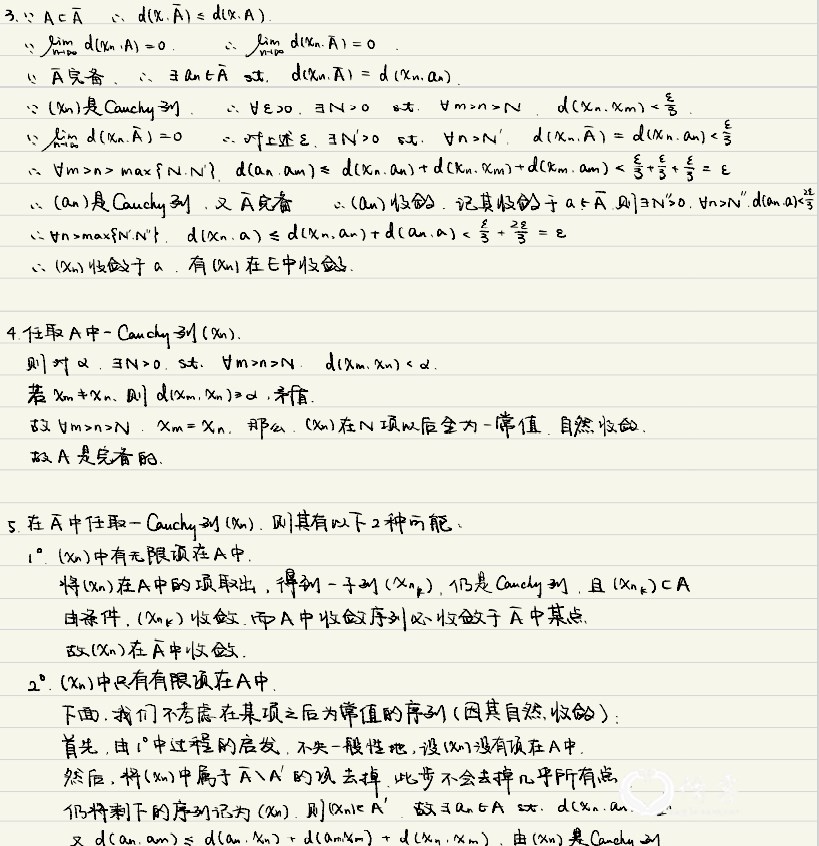 3. ∵ A⊂Ā ∴ d(x.Ā) ≤ d(x.A).
∵ lim n→∞ d(xn.A)=0. ∴ lim n→∞ d(xn.Ā)=0.
∵ Ā完备. ∴ ∃ an∈Ā st. d(xn.Ā) = d(xn.an).
∵ (xn)是Cauchy列. ∴ ∀ε>0. ∃N>0 st. ∀m>n>N. d(xn.xm) < ε/3.
∵ lim n→∞ d(xn.Ā)=0 ∴ 对上述ε. ∃N'>0 st. ∀n>N'. d(xn.Ā) = d(xn.an) < ε/3
∴ ∀m>n>max{N.N'}. d(an.am) ≤ d(xn.an)+d(xn.xm)+d(xm.am) < ε/3+ε/3+ε/3 = ε
∴ (an)是Cauchy列. 又Ā完备 ∴(an)收敛. 记其收敛于a∈Ā. 则∃N''>0. ∀n>N''. d(an.a)<2ε/3
∴ ∀n>max{N'.N''}. d(xn.a) ≤ d(xn.an)+d(an.a) < ε/3 + 2ε/3 = ε
∴ (xn)收敛于a. 有(xn)在E中收敛.
4. 任取A中一Cauchy列(xn).
则对α. ∃N>0. st. ∀m>n>N. d(xm.xn) < α.
若xm≠xn. 则d(xm.xn)≥α. 矛盾.
故∀m>n>N. xm=xn. 那么. (xn)在N项以后全为一常值. 自然收敛.
故A是完备的.
5. 在Ā中任取一Cauchy列(xn). 则其有以下2种可能.
1°. (xn)中有无限项在A中.
将(xn)在A中的项取出, 得到一子列(xnk). 仍是Cauchy列. 且(xnk)⊂A
由条件. (xnk)收敛. 而A中收敛序列必收敛于Ā中某点.
故(xn)在Ā中收敛.
2°. (xn)中只有有限项在A中.
下面. 我们不考虑在某项之后为常值的序列(因其自然收敛):
首先, 由1°中过程的启发. 不失一般性地, 设(xn)没有项在A中.
然后, 将(xn)中属于Ā\A'的项去掉. 此步不会去掉几乎所有点.
仍将剩下的序列记为(xn). 则(xn)⊂A' 故∃an∈A st. d(xn.an
又d(an.am) ≤ d(an.xn) + d(am.xm) + d(xn.xm). 由(xn)是Cauchy列